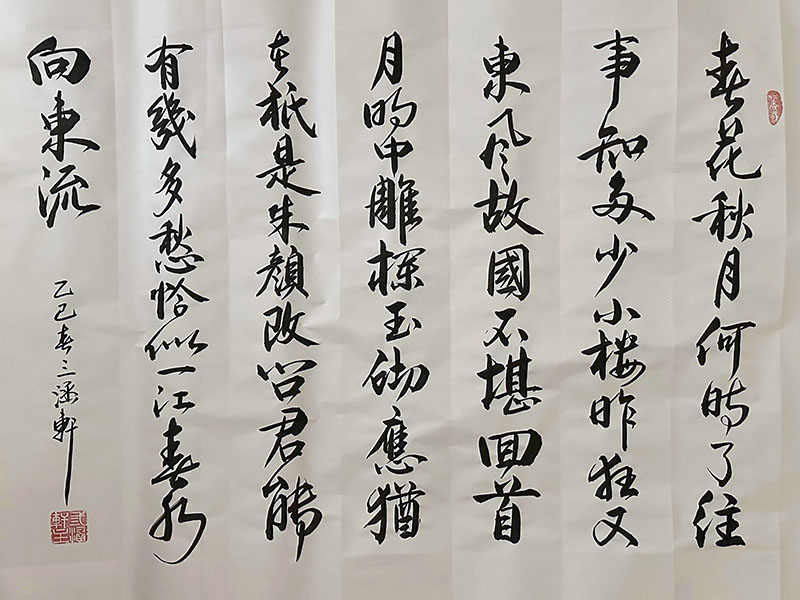 春花秋月何時了往
事知多少小楼昨夜又
東風故國不堪回首
月明中雕欄玉砌應猶
在祇是朱顏改問君能
有幾多愁恰似一江春水
向東流
乙巳春三涵軒